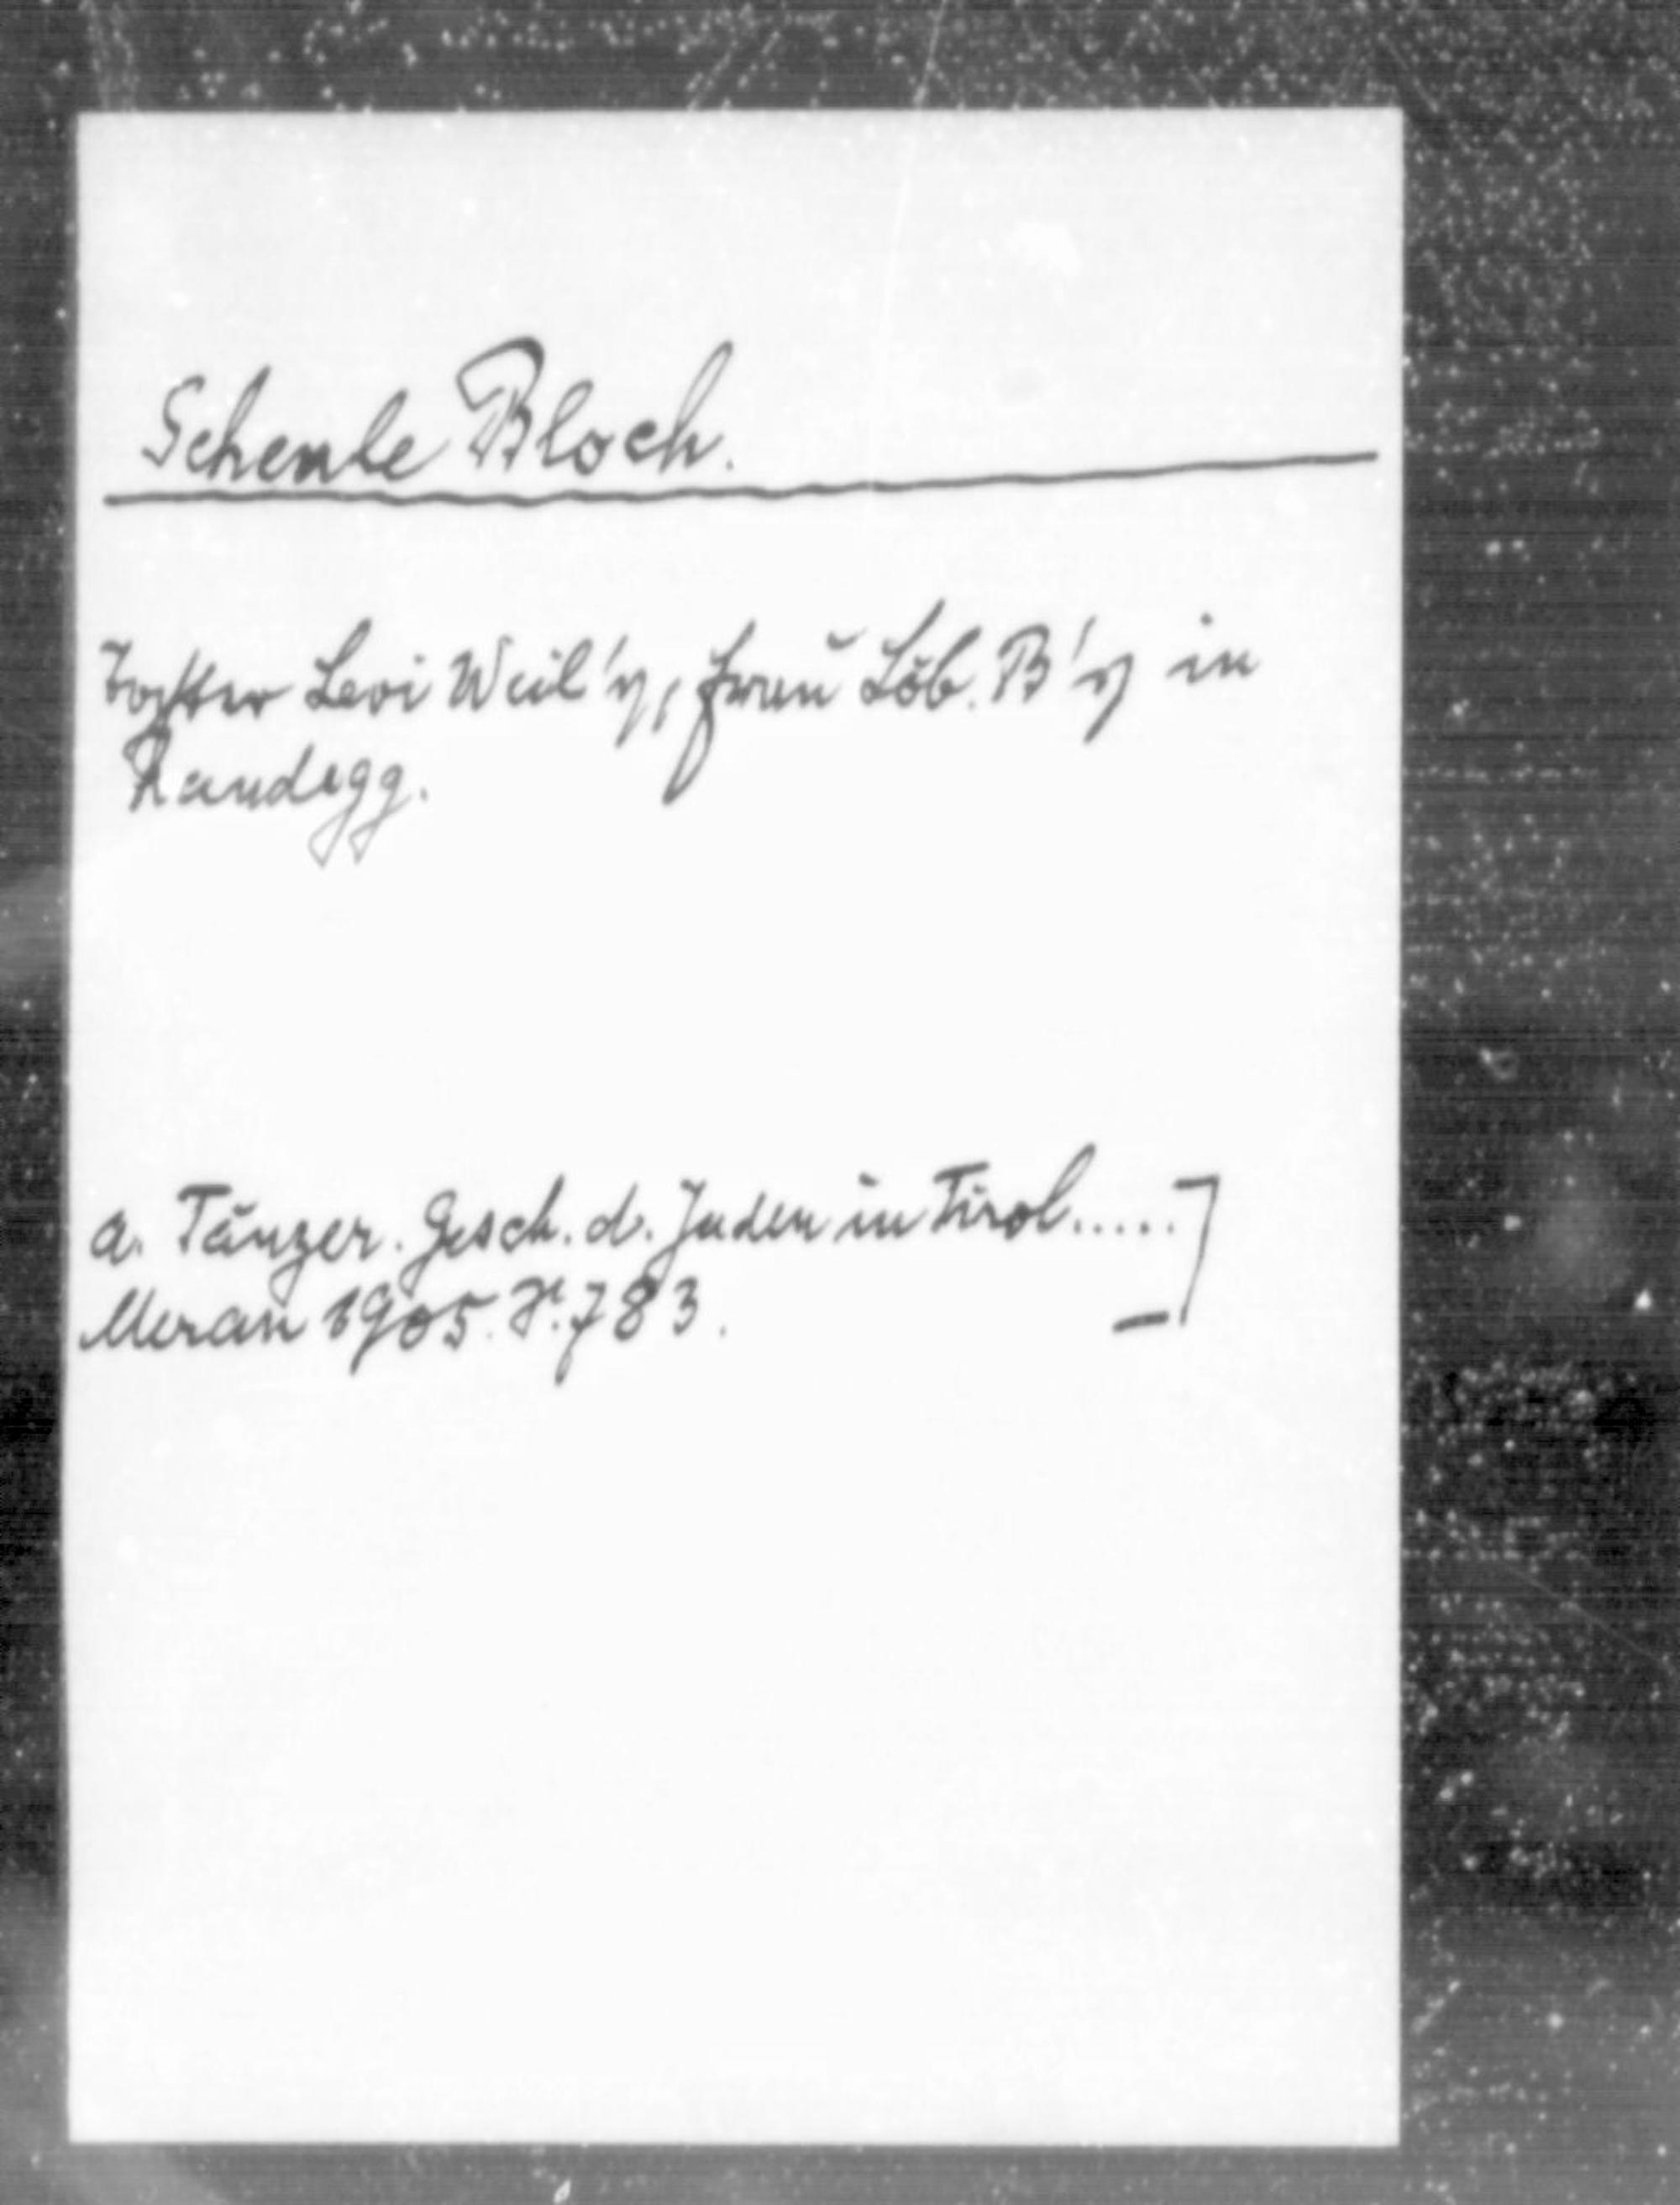 Schenle Bloch.
Tochter Levi Weil's, Frau Löb. B's in
Randegg.
A. Tänzer. Gesch. d. Juden in Tirol.....
Meran 1905. S. 783.